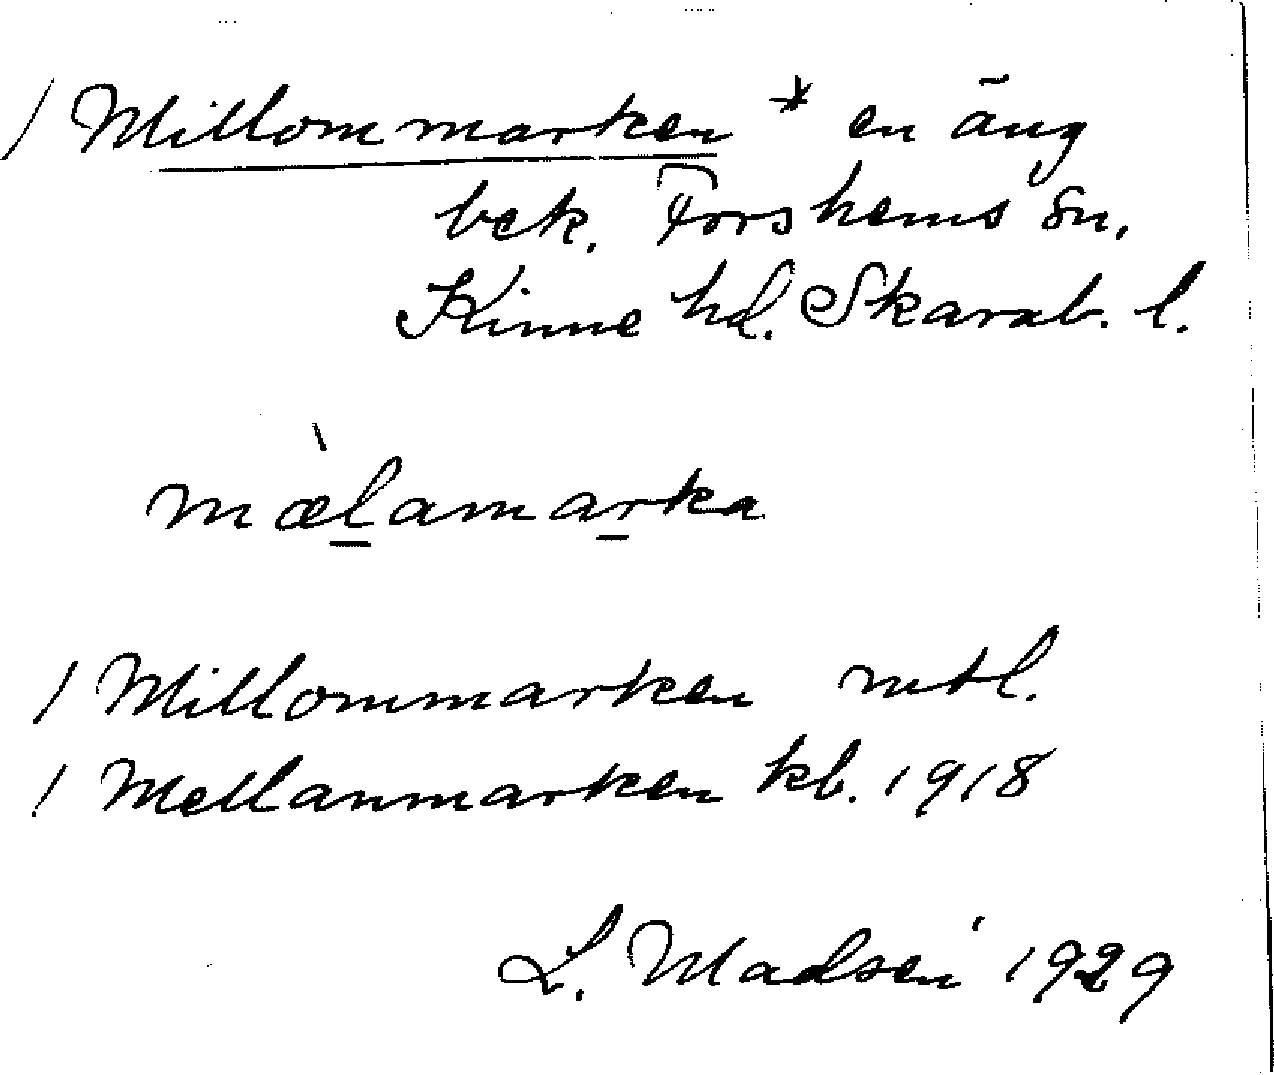 / Millommarken * en äng
bek. Forshems sn.
Kinne hd. Skarab. l.
mæ̀l̠amar̠ka
/ Millommarken mtl.
/ Mellanmarken kb. 1918
L. Madsén 1929